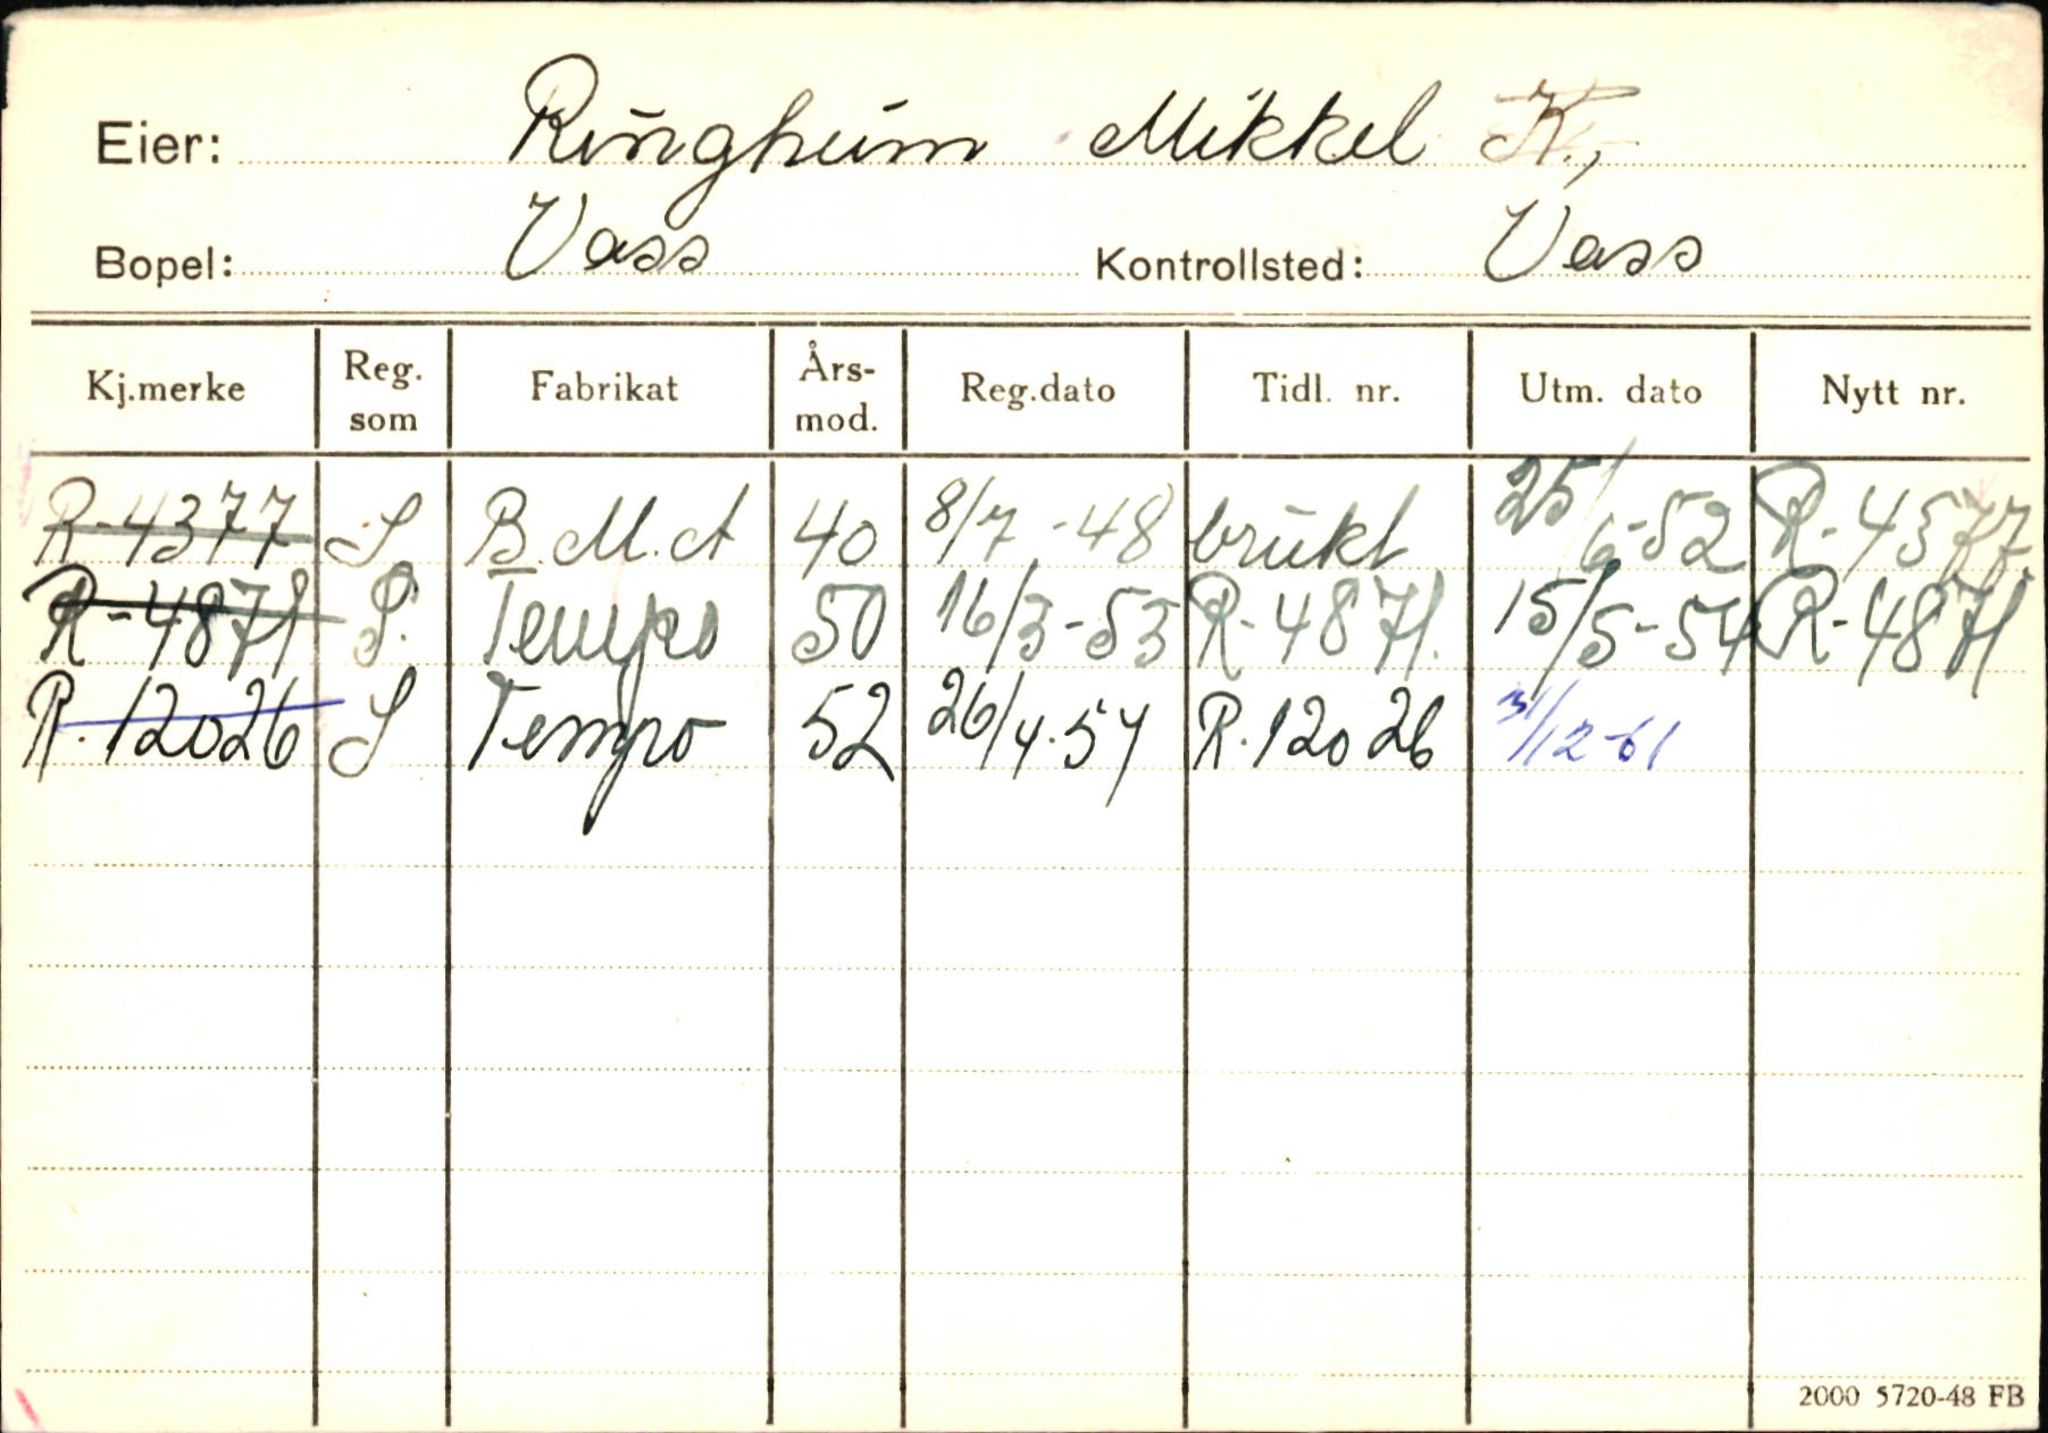 Eier: Ringheim Mikkel K.,
Bopel: Voss Kontrollsted: Voss
Kj.merke Reg. som Fabrikat Års-mod. Reg.dato Tidl. nr. Utm. dato Nytt nr.
R-4377 S B.M.A 40 8/7-48 brukt 25/6-52 R-4377
R-4871 S. Tempo 50 16/3-53 R-4871. 15/5-54 R-4871
R.12026 S Tempo 52 26/4.57 R.12026 31/12-61
2000 5720-48 FB